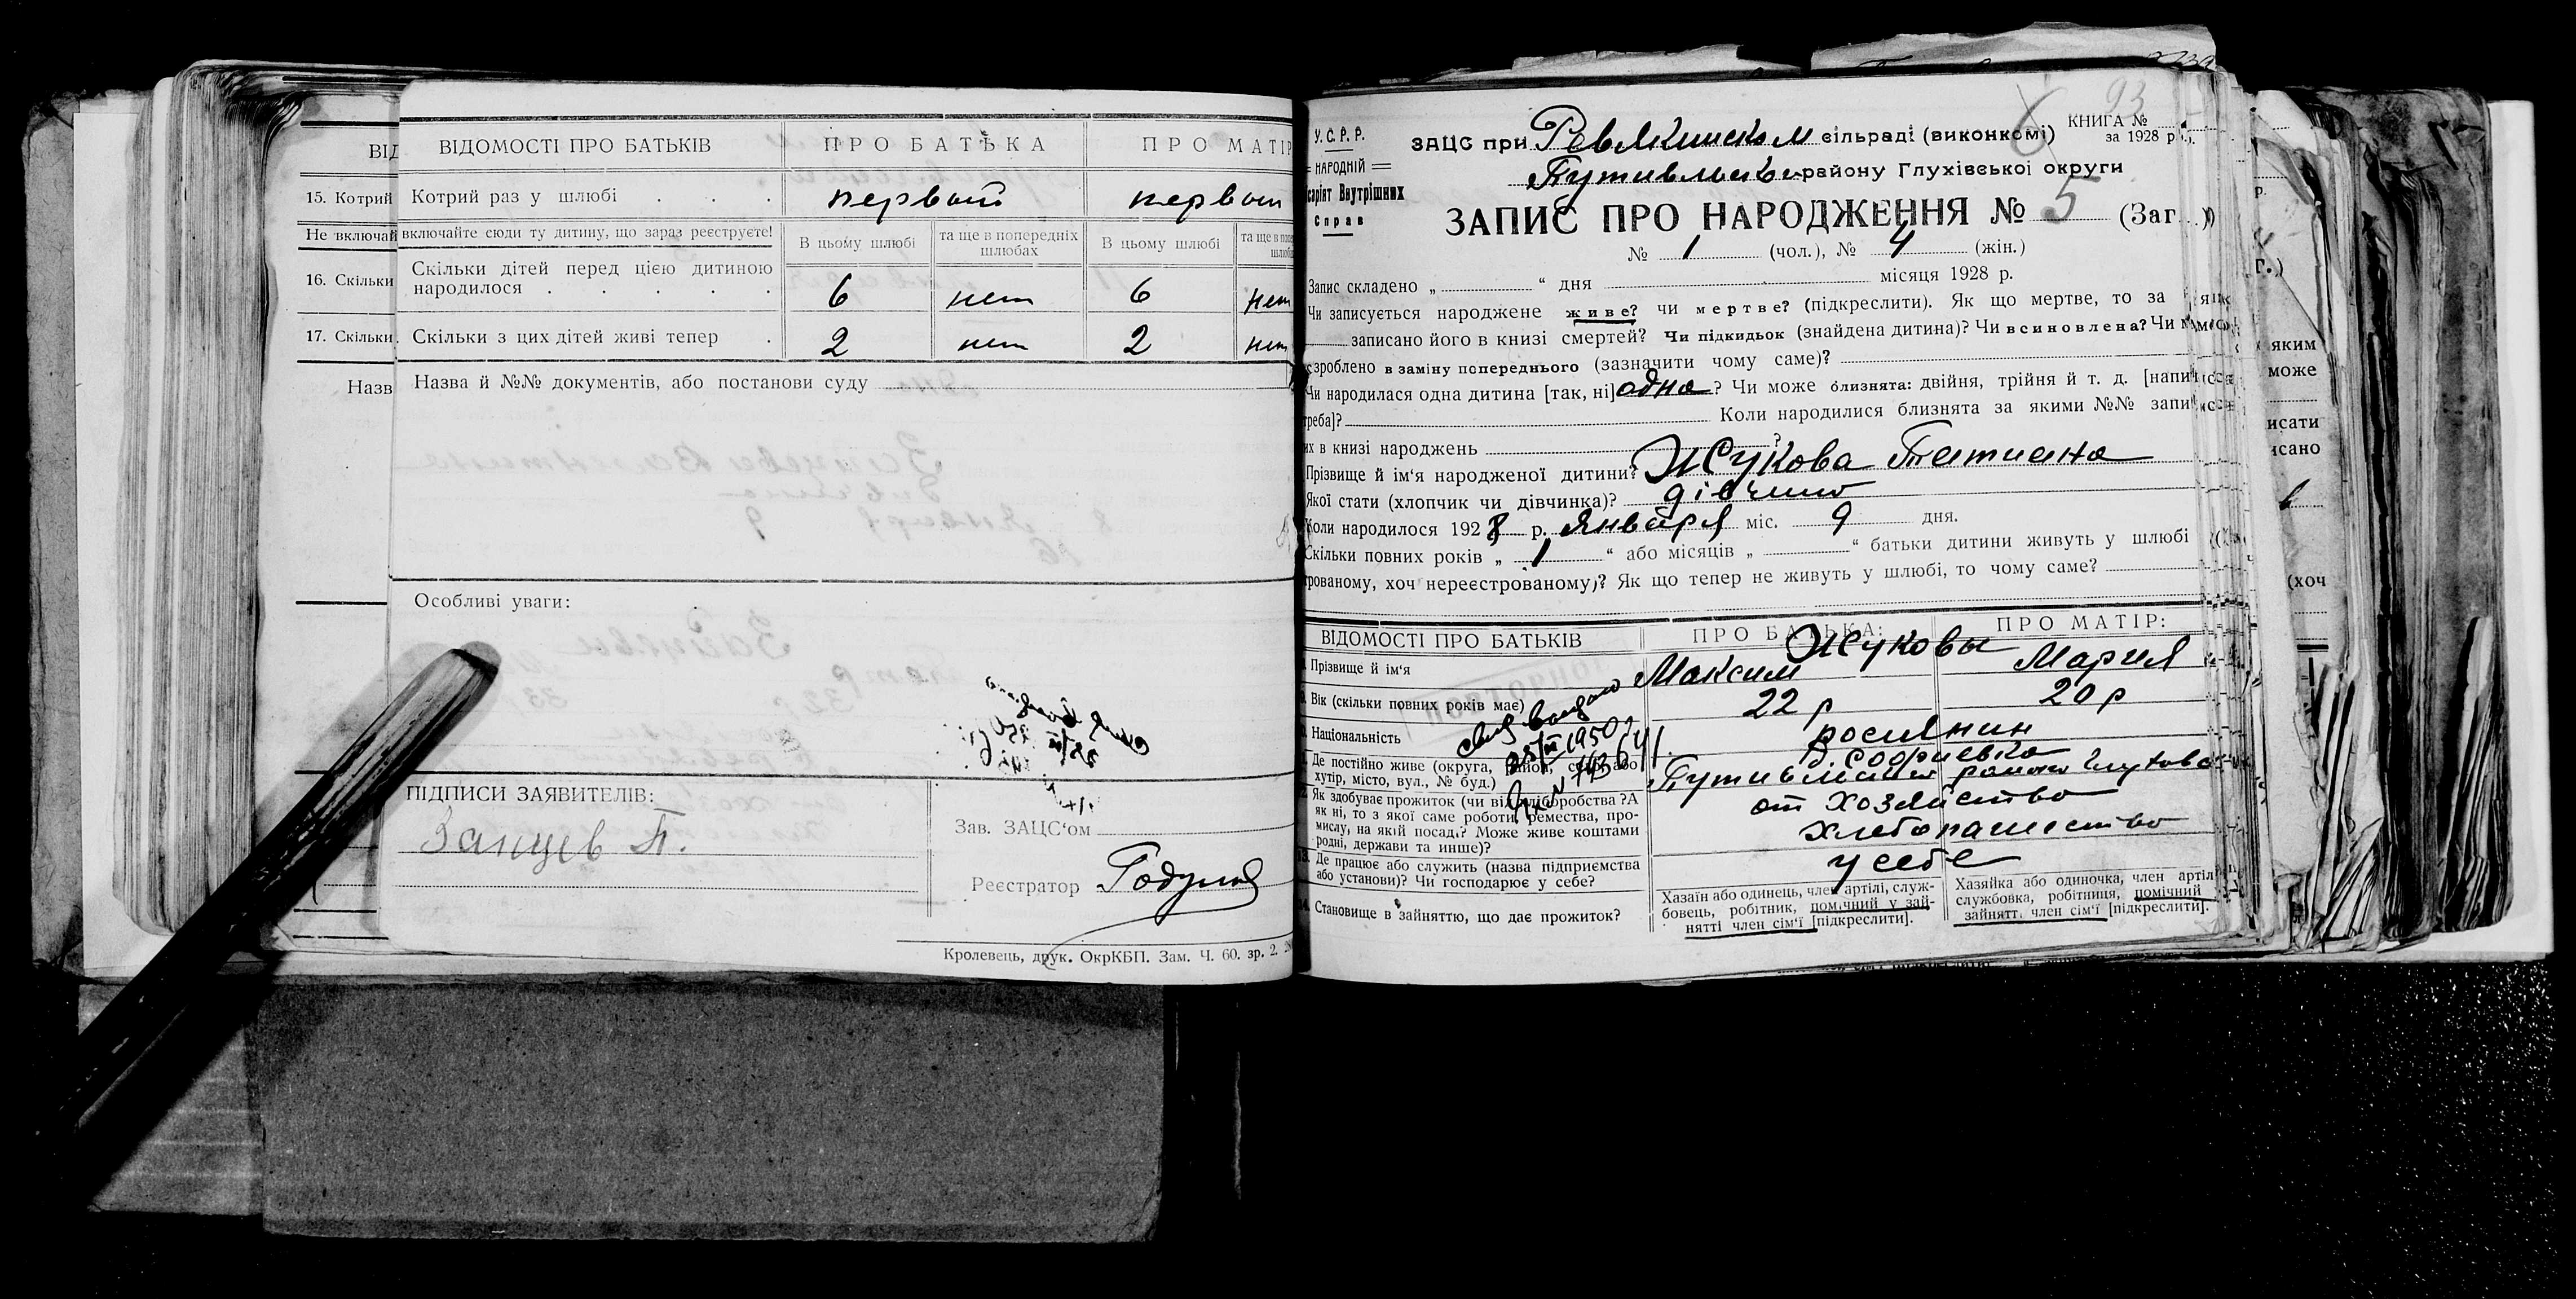 ВІДОМОСТІ ПРО БАТЬКІВ ПРО БАТЬКА ПРО МАТІР
15. Котрий Котрий раз у шлюбі первый первый
Не включай включайте сюди ту дитину, що зараз реєструєте! В цьому шлюбі та ще в попередніх шлюбах В цьому шлюбі
16. Скільки Скільки дітей перед цією дитиною
народилося 6 нет 6 нет
17. Скільки Скільки з цих дітей живі тепер 2 нет 2 нет
Назв Назва й №№ документів, або постанови суду
Особливі уваги:
ПІДПИСИ ЗАЯВИТЕЛІВ:
Зайцев П.
Зав. ЗАЦС'ом
Реєстратор
Кролевець, друк. ОкрКБП. Зам. Ч. 60. зр. 2.
93
У.С.Р.Р.
НАРОДНІЙ
Внутрішних
Справ
КНИГА №
за 1928 р.
ЗАЦС при Ревякинском сільраді (виконкомі)
Путивльськ. району Глухівської округи
ЗАПИС ПРО НАРОДЖЕННЯ № 5 (Заг.)
№ 1 (чол.), № 4 (жін.)
Запис складено „ “ дня місяця 1928 р.
Чи записується народжене живе? чи мертве? (підкреслити). Як що мертве, то за
записано його в книзі смертей? Чи підкидьок (знайдена дитина)? Чи всиновлена? Чи
зроблено в заміну попереднього (зазначити чому саме)?
Чи народилася одна дитина [так, ні] одна? Чи може близнята: двійня, трійня й т. д.
треба]? Коли народилися близнята за якими №№
їх в книзі народжень ?
Прізвище й ім'я народженої дитини? Жукова Татиана
Якої стати (хлопчик чи дівчинка)? дівчина
Коли народилося 1928 р. Января міс. 9 дня.
Скільки повних років „ 1 “ або місяців „ “ батьки дитини живуть у шлюбі
рованому, хоч нереєстрованому)? Як що тепер не живуть у шлюбі, то чому саме?
ВІДОМОСТІ ПРО БАТЬКІВ ПРО БАТЬКА: ПРО МАТІР:
Жуковы
Прізвище й ім'я Максим Мария
Вік (скільки повних років має) 22 р 20 р
Національність росиянин
Де постійно живе (округа, район, село або
хутір, місто, вул., № буд.)
Як здобуває прожиток (чи від хліборобства? А
як ні, то з якої саме роботи, ремества, про-
мислу, на якій посаді? Може живе коштами
родні, держави та инше)?
от хозяйство
хлебопашество
Де працює або служить (назва підприємства
або установи)? Чи господарює у себе?
у себе
Становище в зайняттю, що дає прожиток?
Хазаїн або одинець, член артілі, служ-
бовець, робітник, помічний у зай-
нятті член сім'ї [підкреслити].
Хазяйка або одиночка, член артіл
службовка, робітниця, помічний
зайнятті член сім'ї [підкреслити].
яким
може
исати
исано
(хоч